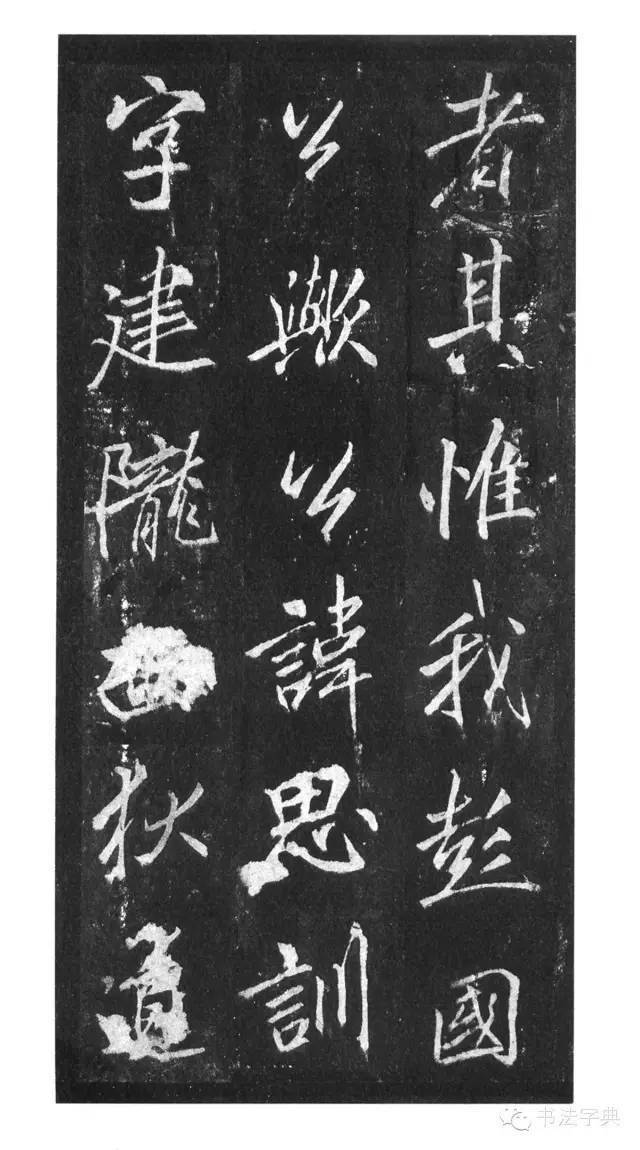 者其惟我彭國
公歟公諱思訓
字建隴西狄道
书法字典